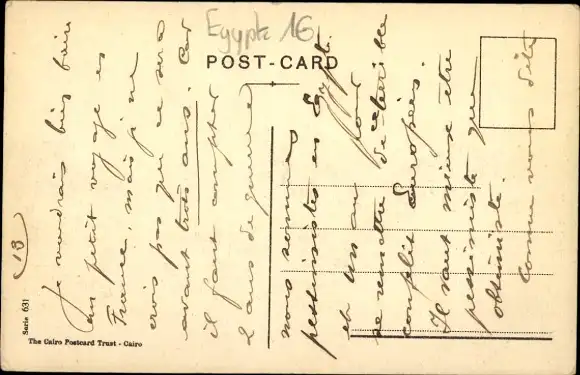 Egypte 16
POST-CARD
13
Je voudrais bien faire
un petit voyage en
France, mais je ne
crois pas que ce sera
avant trois ans. Car
il faut compter
2 ans de guerre
nous sommes
pessimistes en Egypte
et un an pour
se remettre de ce terrible
conflit Européen.
Il vaut mieux etre
pessimiste que
obtimiste.
Comme vous dites
Serie 631
The Cairo Postcard Trust - Cairo